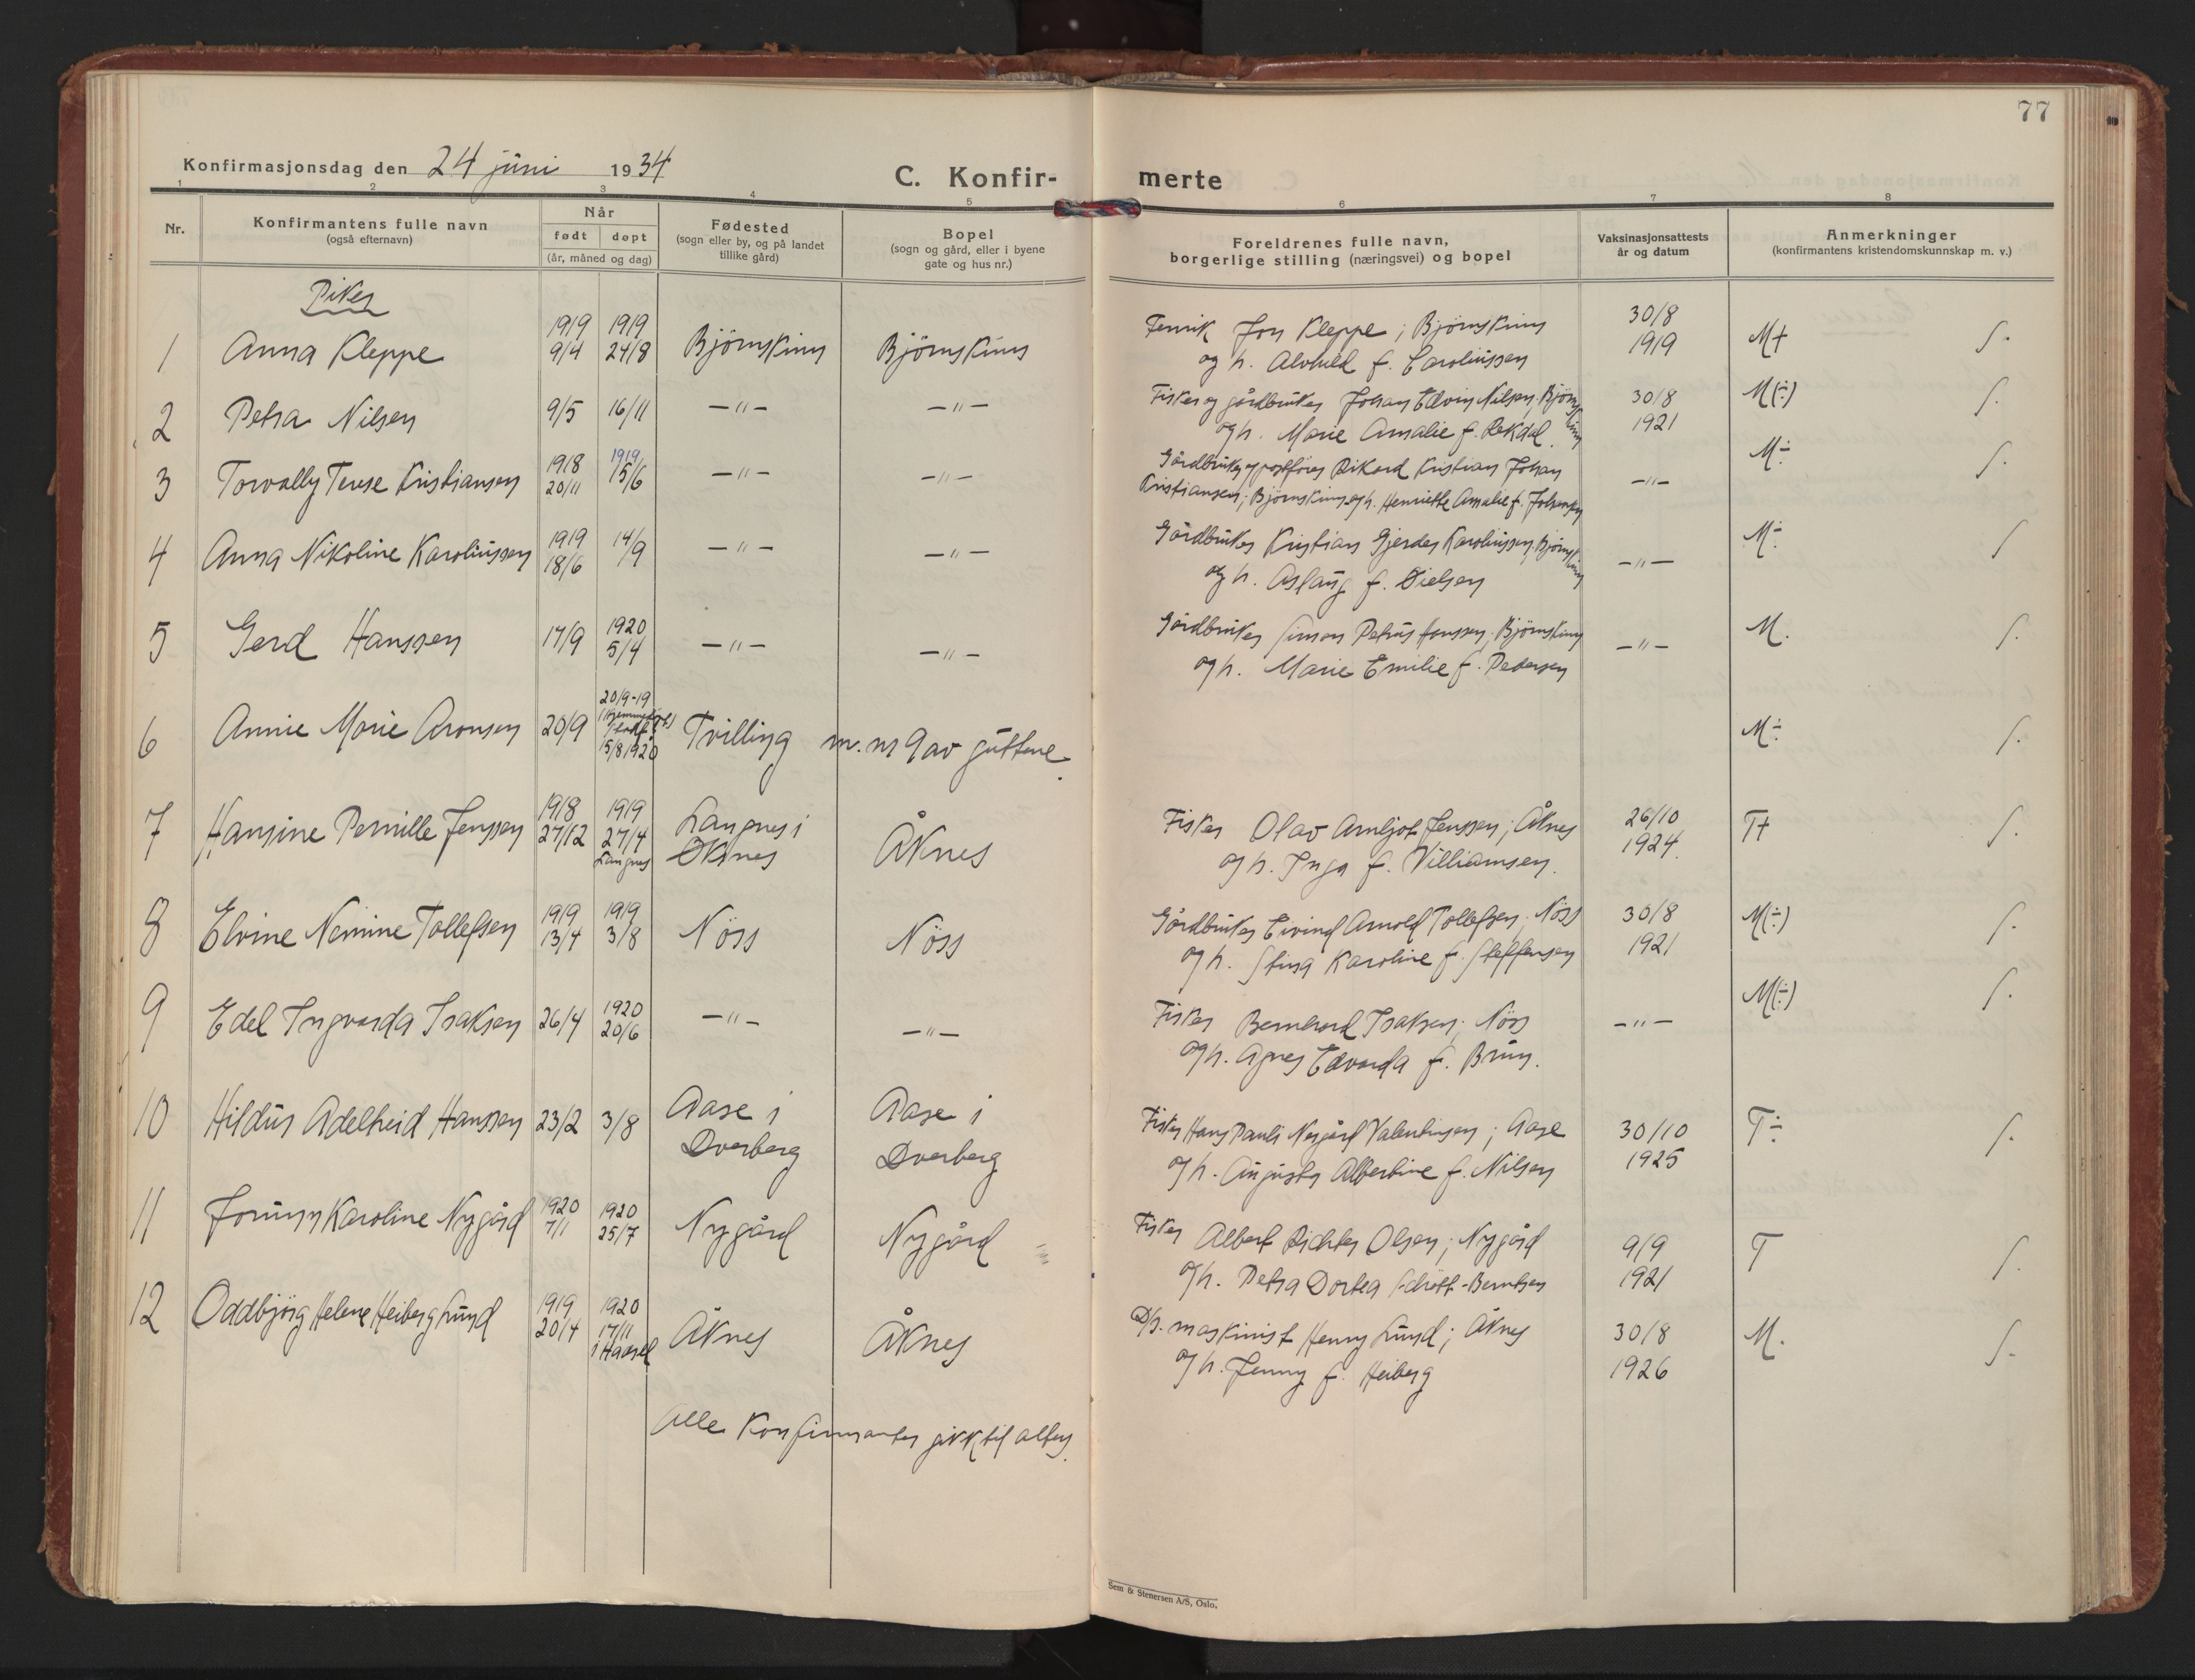 77
Konfirmasjonsdag den 24 juni 1934
C. Konfir- merte
1 2 3 4 5 6 7 8
Nr.
Konfirmantens fulle navn
(også efternavn)
Når
født døpt
(år, måned og dag)
Fødested
(sogn eller by, og på landet
tillike gård)
Bopel
(sogn og gård, eller i byene
gate og hus nr.)
Foreldrenes fulle navn,
borgerlige stilling (næringsvei) og bopel
Vaksinasjonsattests
år og datum
Anmerkninger
(konfirmantens kristendomskunnskap m. v.)
Piker
1 Anna Kleppe 1919 9/4 1919 24/8 Björnskinn Björnskinn
Fenrik Jon Kleppe; Björnskinn
og h. Alvhild f. Caroliussen
30/8 1919 M+ S.
2 Petra Nilsen 9/5 16/11 —"— —"—
Fisker og gårdbruker Johan Edvin Nilsen, Björnskinn
og h. Marie Amalie f. Rekdal
30/8 1921 M(÷) S.
3 Torvally Terese Kristiansen 1918 20/11 1919 15/6 —"— —"—
Gårdbruker og postförer Rikard Kristian Johan
Kristiansen; Björnskinn og h. Henriette Amalie f. Johansen
—"— M÷ S.
4 Anna Nikoline Karoliussen 1919 18/6 14/9 —"— —"—
Gårdbruker Kristian Gjerdes Karoliussen, Björnskinn
og h. Aslaug f. Dielsen
—"— M÷ S
5 Gerd Hanssen 17/9 1920 5/4 —"— —"—
Gårdbruker Simon Petrus Hanssen, Björnskinn
og h. Marie Emilie f. Pedersen
—"— M. S.
6 Annie Marie Aronsen 20/9 20/9-19 15/8 1920 Tvilling m. nr 9 av guttene.
M÷ S.
7 Hansine Pernille Jenssen 1918 27/12 1919 27/4 Langnes Langnes i Öksnes Åknes
Fisker Olav Arnljot Jenssen; Åknes
og h. Inga f. Villiamsen.
26/10 1924. T+ S.
8 Elvine Nemine Tollefsen 1919 13/4 1919 3/8 Nöss Nöss
Gårdbruker Eivind Arnold Tollefsen, Nöss
og h. Stina Karoline f. Steffensen
30/8 1921 M(÷) S.
9 Edel Ingvarda Isaksen 26/4 1920 20/6 —"— —"—
Fisker Bernhard Isaksen; Nöss
og h. Agnes Edvarda f. Brun.
—"— M(÷) S.
10 Hildur Adelheid Hanssen 23/2 3/8 Aase i Dverberg Aase i Dverberg
Fisker Hans Pauli Nygård Valentinsen; Aase
og h. Augusta Albertine f. Nilsen
30/10 1925 T÷ S.
11 Jorunn Karoline Nygård 1920 7/1 1920 25/7 Nygård Nygård
Fisker Albert Richter Olsen; Nygård
og h. Petra Dortea Schrött-Berntsen
9/9 1921 T S.
12 Oddbjörg Helene Heiberg Lund 1919 20/4 1920 17/11 i Hadsel Åknes Åknes
D/s. maskinist Henry Lund; Åknes
og h. Jenny f. Heiberg
30/8 1926 M. S.
Alle konfirmanter gikk til alters.
Sem & Stenersen A/S, Oslo.